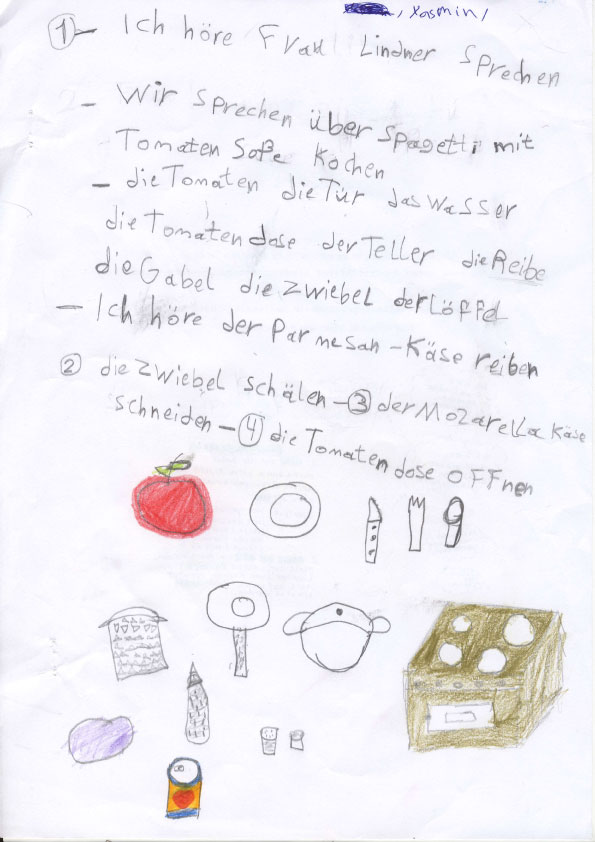 , Yasmin,
① – Ich höre Frau Lindner sprechen
– Wir sprechen über Spagetti mit
Tomaten Soße Kochen
– die Tomaten die Tür das Wasser
die Tomatendose der Teller die Reibe
die Gabel die Zwiebel der Löffel
– Ich höre der Parmesan-Käse reiben
② die Zwiebel schälen – ③ der Mozarella Käse
schneiden – ④ die Tomaten dose OFFnen